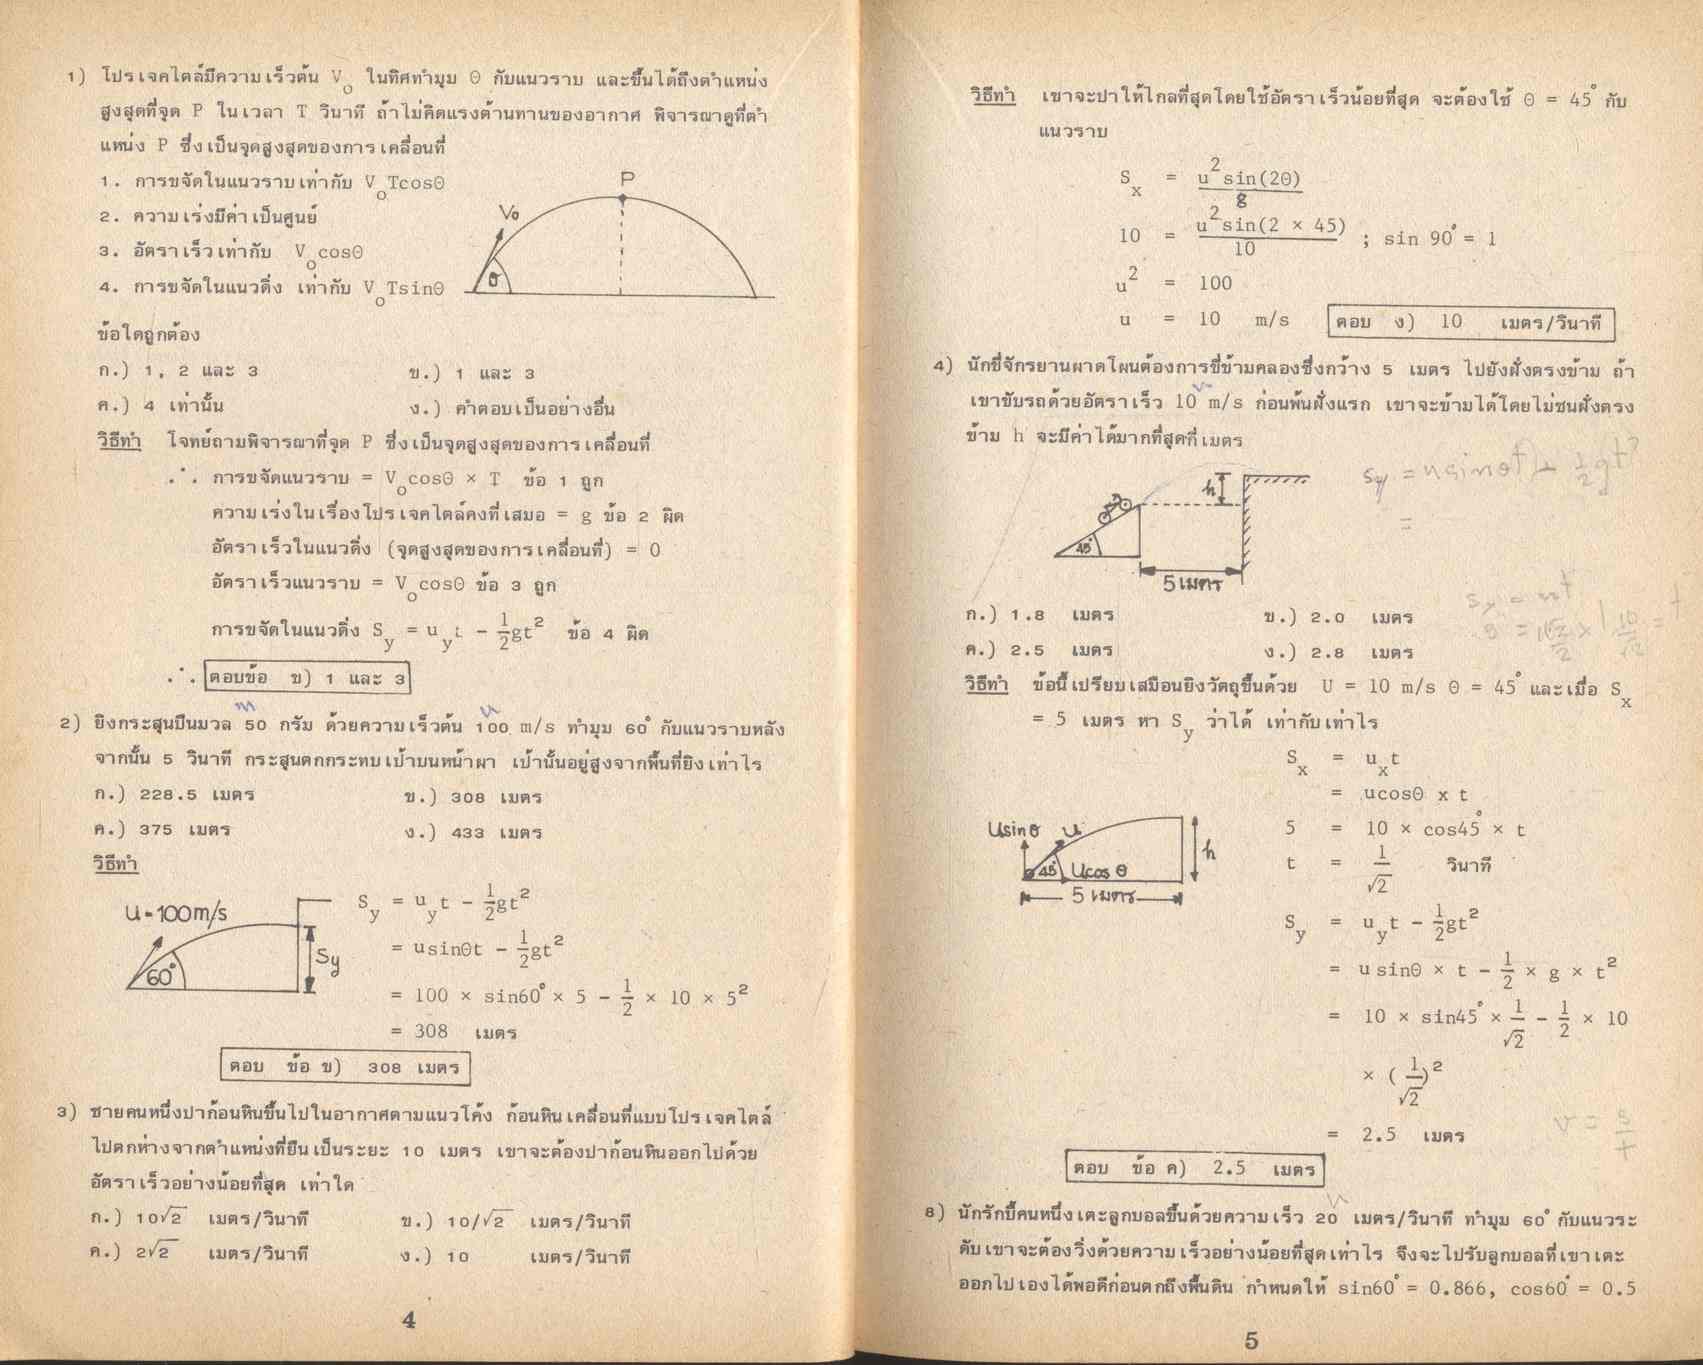 1) โปรเจคไตล์มีความเร็วต้น V₀ ในทิศทำมุม θ กับแนวราบ และขึ้นได้ถึงตำแหน่ง
สูงสุดที่จุด P ในเวลา T วินาที ถ้าไม่คิดแรงต้านทานของอากาศ พิจารณาดูที่ตำ
แหน่ง P ซึ่งเป็นจุดสูงสุดของการเคลื่อนที่
1. การขจัดในแนวราบเท่ากับ V₀Tcosθ
2. ความเร่งมีค่าเป็นศูนย์
3. อัตราเร็วเท่ากับ V₀cosθ
4. การขจัดในแนวดิ่ง เท่ากับ V₀Tsinθ
P
V₀
θ
ข้อใดถูกต้อง
ก.) 1, 2 และ 3 ข.) 1 และ 3
ค.) 4 เท่านั้น ง.) คำตอบเป็นอย่างอื่น
วิธีทำ โจทย์ถามพิจารณาที่จุด P ซึ่งเป็นจุดสูงสุดของการเคลื่อนที่
∴ การขจัดแนวราบ = V₀cosθ × T ข้อ 1 ถูก
ความเร่งในเรื่องโปรเจคไตล์คงที่เสมอ = g ข้อ 2 ผิด
อัตราเร็วในแนวดิ่ง (จุดสูงสุดของการเคลื่อนที่) = 0
อัตราเร็วแนวราบ = V₀cosθ ข้อ 3 ถูก
การขจัดในแนวดิ่ง Sy = uyt - ½gt² ข้อ 4 ผิด
∴ ตอบข้อ ข) 1 และ 3
m u
2) ยิงกระสุนปืนมวล 50 กรัม ด้วยความเร็วต้น 100 m/s ทำมุม 60° กับแนวราบหลัง
จากนั้น 5 วินาที กระสุนตกกระทบเป้าบนหน้าผา เป้านั้นอยู่สูงจากพื้นที่ยิงเท่าไร
ก.) 228.5 เมตร ข.) 308 เมตร
ค.) 375 เมตร ง.) 433 เมตร
วิธีทำ
u = 100 m/s
60°
Sy
Sy = uyt - ½gt²
= usinθt - ½gt²
= 100 × sin60° × 5 - ½ × 10 × 5²
= 308 เมตร
ตอบ ข้อ ข) 308 เมตร
3) ชายคนหนึ่งปาก้อนหินขึ้นไปในอากาศตามแนวโค้ง ก้อนหินเคลื่อนที่แบบโปรเจคไตล์
ไปตกห่างจากตำแหน่งที่ยืนเป็นระยะ 10 เมตร เขาจะต้องปาก้อนหินออกไปด้วย
อัตราเร็วอย่างน้อยที่สุด เท่าใด
ก.) 10√2 เมตร/วินาที ข.) 10/√2 เมตร/วินาที
ค.) 2√2 เมตร/วินาที ง.) 10 เมตร/วินาที
4
วิธีทำ เขาจะปาให้ไกลที่สุดโดยใช้อัตราเร็วน้อยที่สุด จะต้องใช้ θ = 45° กับ
แนวราบ
Sx = u²sin(2θ)/g
10 = u²sin(2 × 45)/10 ; sin 90° = 1
u² = 100
u = 10 m/s ตอบ ง) 10 เมตร/วินาที
4) นักขี่จักรยานผาดโผนต้องการขี่ข้ามคลองซึ่งกว้าง 5 เมตร ไปยังฝั่งตรงข้าม ถ้า
u
เขาขับรถด้วยอัตราเร็ว 10 m/s ก่อนพ้นฝั่งแรก เขาจะข้ามได้โดยไม่ชนฝั่งตรง
ข้าม h จะมีค่าได้มากที่สุดกี่เมตร
h
45°
5 เมตร
Sy = usinθt + ½gt²
=
ก.) 1.8 เมตร ข.) 2.0 เมตร
ค.) 2.5 เมตร ง.) 2.8 เมตร
วิธีทำ ข้อนี้เปรียบเสมือนยิงวัตถุขึ้นด้วย U = 10 m/s θ = 45° และเมื่อ Sx
= 5 เมตร หา Sy ว่าได้ เท่ากับเท่าไร
Sx = uxt
= ucosθ x t
5 = 10 × cos45° × t
t = 1/√2 วินาที
Usinθ u
45° Ucosθ
h
5 เมตร
Sy = uyt - ½gt²
= usinθ × t - ½ × g × t²
= 10 × sin45° × 1/√2 - ½ × 10
× (1/√2)²
= 2.5 เมตร
v = s/t
ตอบ ข้อ ค) 2.5 เมตร
u
8) นักรักบี้คนหนึ่งเตะลูกบอลขึ้นด้วยความเร็ว 20 เมตร/วินาที ทำมุม 60° กับแนวระ
ดับเขาจะต้องวิ่งด้วยความเร็วอย่างน้อยที่สุดเท่าไร จึงจะไปรับลูกบอลที่เขาเตะ
ออกไปเองได้พอดีก่อนตกถึงพื้นดิน กำหนดให้ sin60° = 0.866, cos60° = 0.5
5